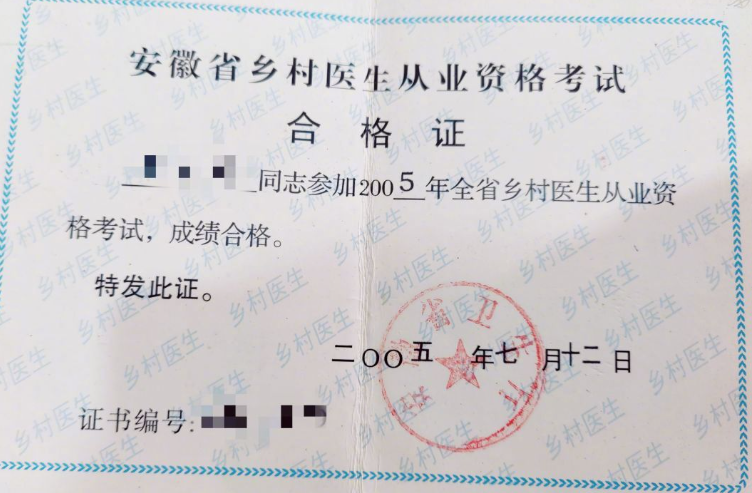 安徽省乡村医生从业资格考试
合格证
同志参加2005年全省乡村医生从业资
格考试，成绩合格。
特发此证。
二〇〇五年七月十二日
省卫生厅
证书编号: